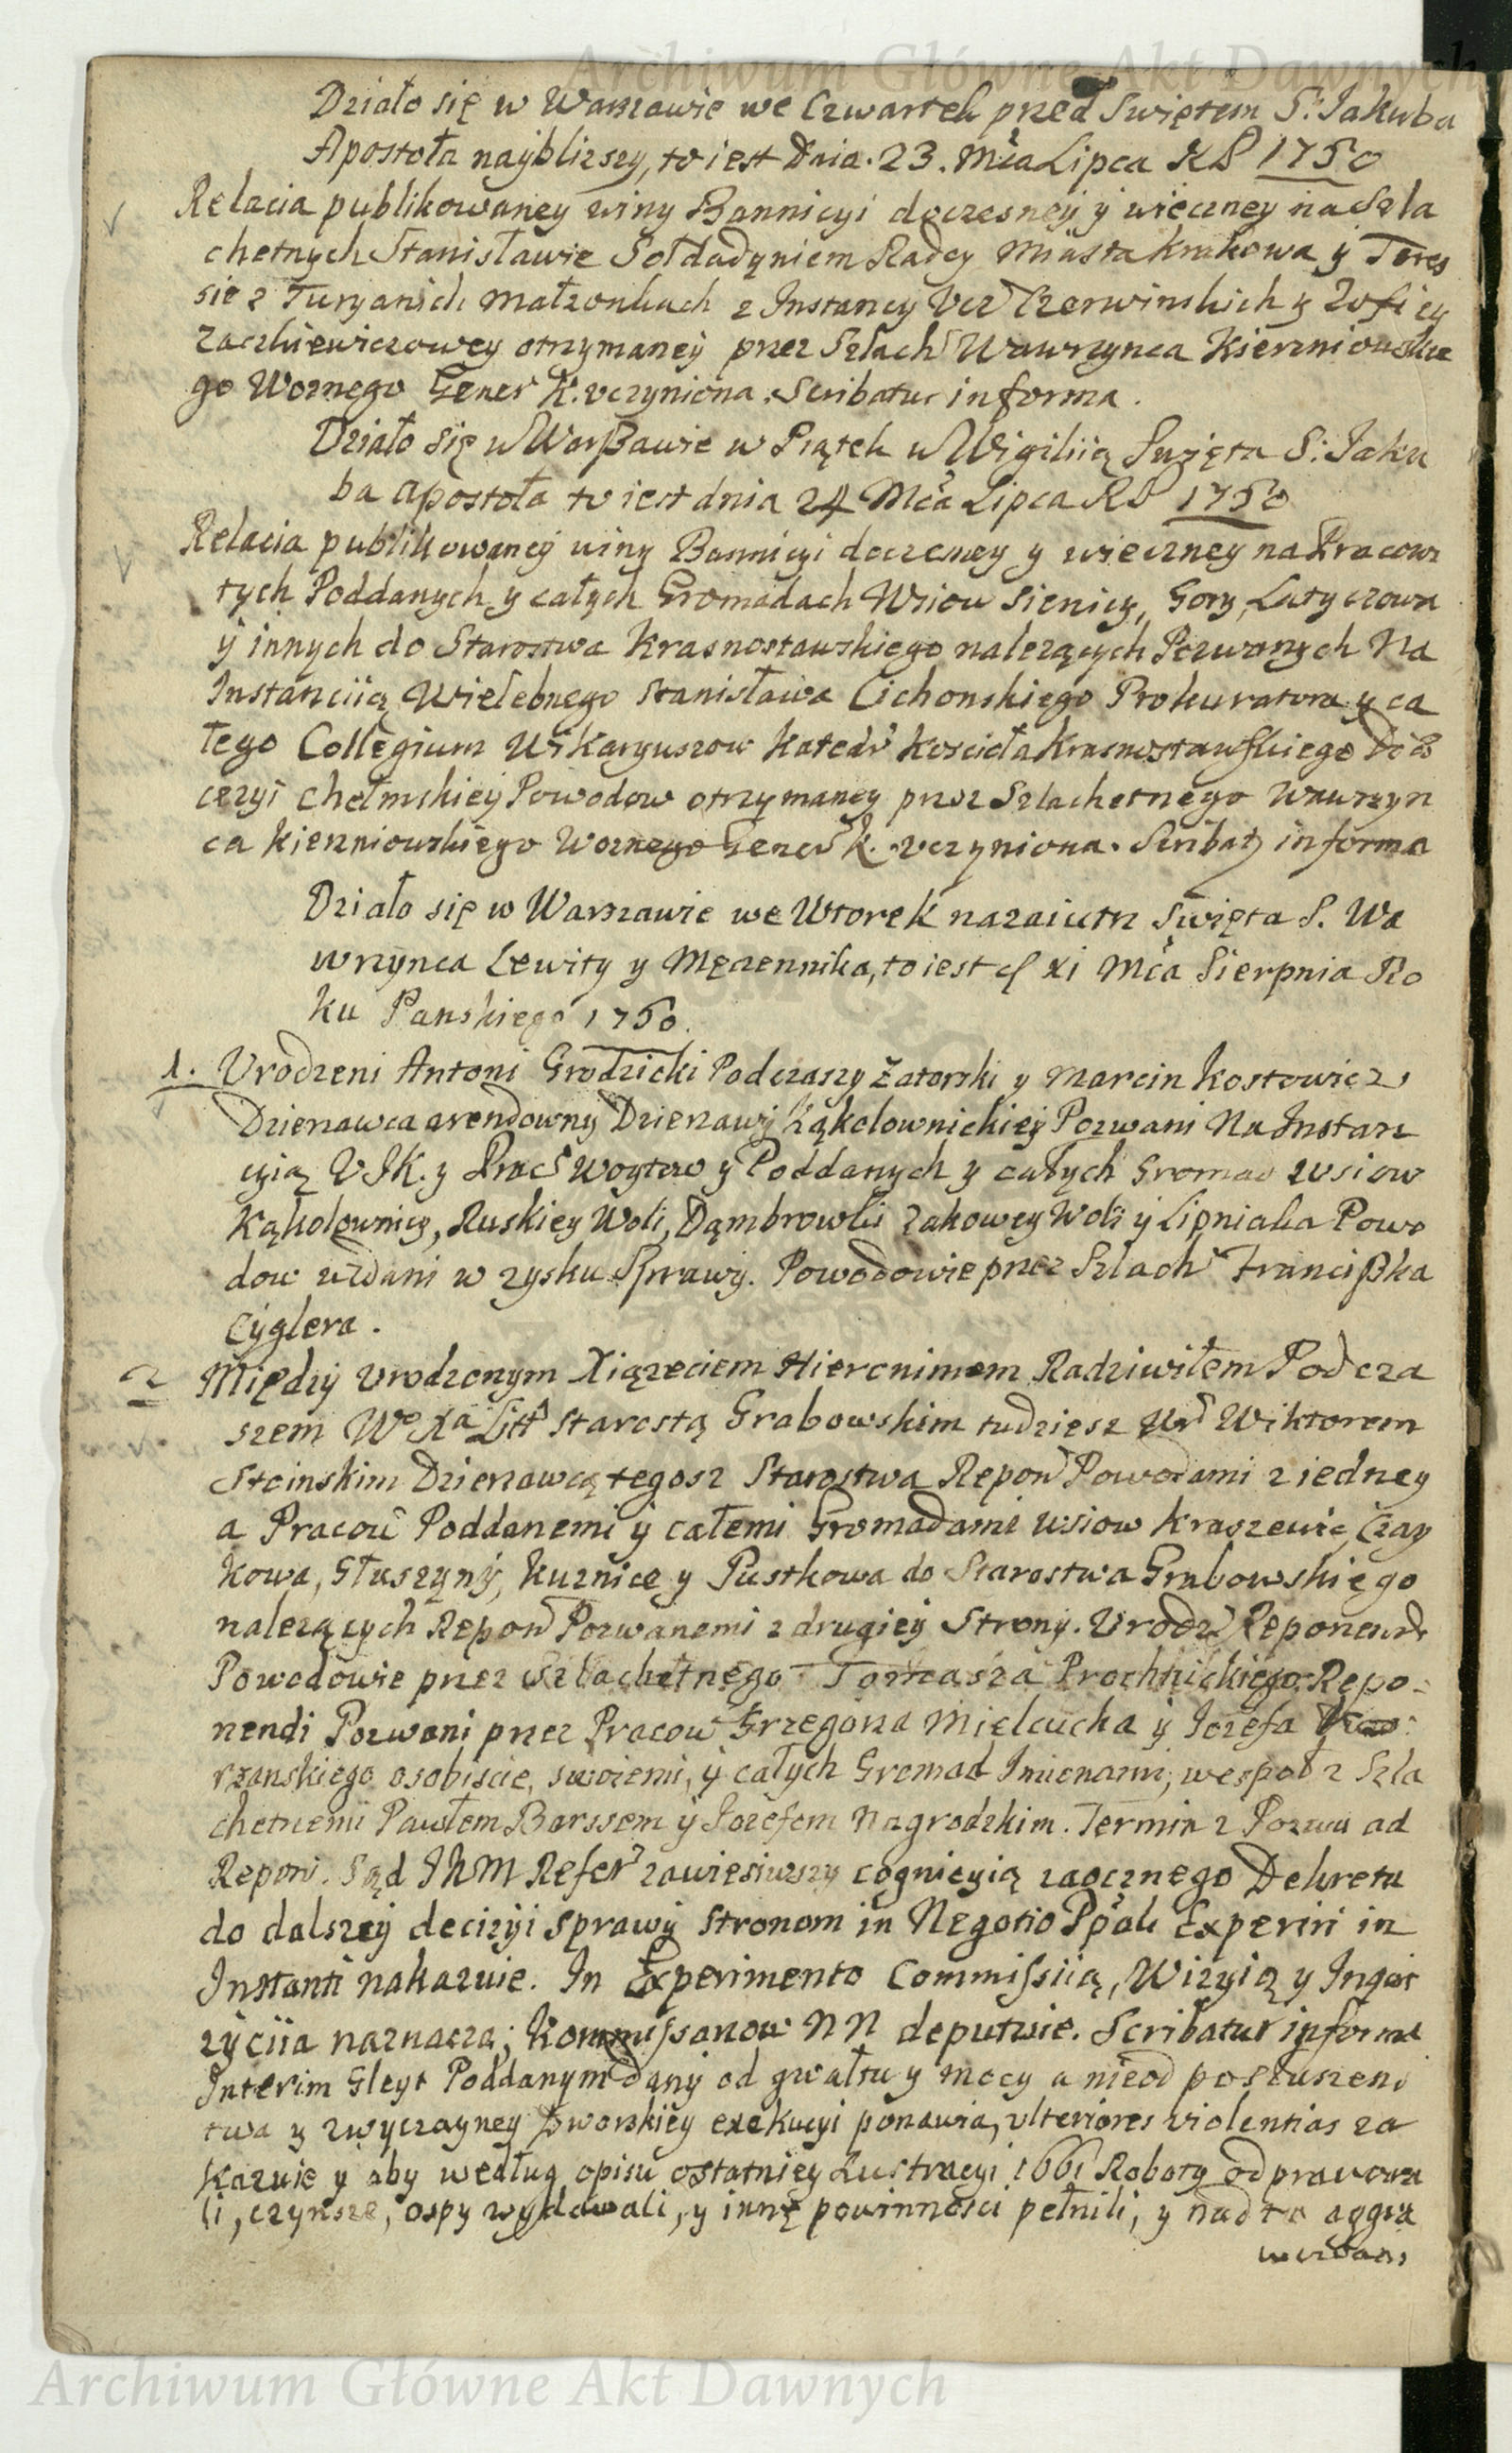 Archiwum Główne Akt Dawnych
Działo się w Warszawie we Czwartek przed Swiętem S: Jakuba
Apostoła nayblizszy, to iest Dnia. 23. Mca Lipca RP 1750
Relacia publikowaney winy Bannicyi doczesney y wieczney na Szla
chetnych Stanisławie Sołdadyniem Radcy Miasta Krakowa y Teres
sie z Turyanich małzonkach z Instancy Ucz Czerwinskich y Zofiey
Zaczkiewiczowey otrzymaney przez Szlach Wawrzynca Kierzniowskie
go Woznego Gener K. uczyniona. Scribatur in forma.
Działo się w Warßawie w Piątek w Wigiliią Swięta S: Jaku
ba Apostoła to iest dnia 24 Mca Lipca RP 1750
Relacia publikowaney winy Bannicyi doczesney y wieczney na Pracowi
tych Poddanych y całych Gromadach Wsiow Sienicy, Gory, Latyczowa
y innych do Starostwa Krasnostawskiego nalezących Pozwanych Na
Instanciią Wielebnego Stanisława Cichonskiego Prokuratora y ca
łego Collegium Wikaryuszow Katedr Koscioła Krasnostawskiego Dioe
cezyi Chełmskiey Powodow otrzymaney przez Szlachetnego Wawrzyn
ca Kierzniowskiego Woznego Gener K. uczyniona. Scribat in forma
Działo się w Warszawie we Wtorek nazaiutrz Swięta S. Wa
wrzynca Lewity y Męczennika, to iest d XI Mca Sierpnia Ro
ku Panskiego 1750.
1. Urodzeni Antoni Grodzicki Podczaszy Zatorski y Marcin Kostowicz
Dzierzawca arendowny Dzierzawy Kąkolownickiey Pozwani Na Instan
cyią VJK. y Prac Woytow y Poddanych y całych Gromad wsiow
Kąkolownicy, Ruskiey Woli, Dąmbrowki Zakowey Woli y Lipniaka Powo
dow wzdani w zysku Sprawy. Powodowie przez Szlach Francißka
Cyglera.
2 Między Urodzonym Xiązeciem Hieronimem Radziwiłem Podcza
szem Wo Xa Litt Starostą Grabowskim tudziesz Ur Wiktorem
Stoinskim Dzierzawcą tegosz Starostwa Repon Powodami z iedney
a Pracow Poddanemi y całemi Gromadami wsiow Kraszewic, Czay
kowa, Głuszyny, Kuznice y Pustkowa do Starostwa Grabowskiego
nalezących Repon Pozwanemi z drugiey Strony. Urodz Reponend
Powodowie przez Szlachetnego Tomasza Prochnickiego Repo=
nendi Pozwani przez Pracow Grzegorza Mielcucha y Jozefa
rzanskiego osobiscie, swoiemi, y całych Gromad Jmienami, wespoł z Szla
chetnemi Pawłem Barssem y Jozefem Nagrodzkim. Termin z Pozwu ad
Repon. Sąd JKM Refer zawiesiwszy cognicyią zaocznego Dekretu
do dalszey decizyi sprawy stronom in Negotio Ppali Experiri in
Instanti nakazuie. In Experimento Commissiią, Wizyią y Inqui
zyciia naznacza; Kommissarzow NN deputuie. Scribatur in forma
Interim Gleyt Poddanym dany od gwałtu y mocy a nieod posłuszens
twa y zwyczayney Dworskiey exekucyi ponawia, ulteriores violentias za
kazuie y aby według opisu ostatniey Lustracyi 1661 Roboty odprawowa
li, czynsze, ospy wydawali, y inne powinnosci pełnili, y nad to aggra
Archiwum Główne Akt Dawnych